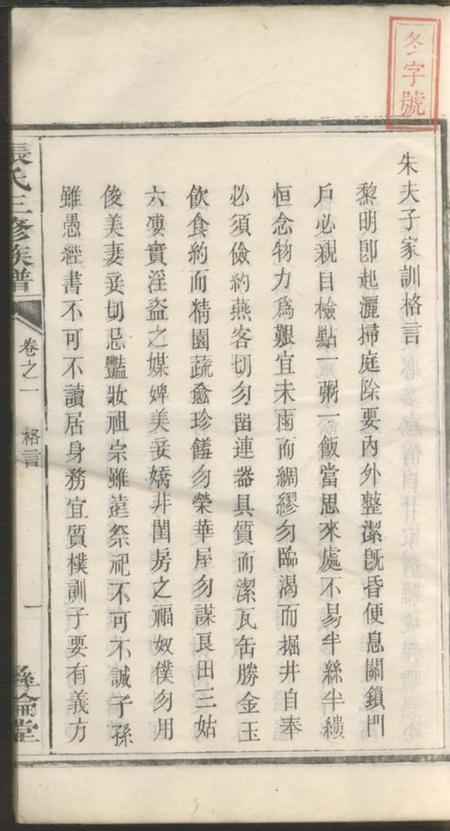 冬字號
朱夫子家訓格言
黎明卽起灑掃庭除要內外整潔旣昏便息關鎖門
戶必親自檢點一粥一飯當思來處不易半絲半縷
恒念物力爲艱宜未雨而綢繆勿臨渴而掘井自奉
必須儉約燕客切勿畱連器具質而潔瓦缶勝金玉
飲食約而精園蔬愈珍饈勿榮華屋勿謀良田三姑
六婆實淫盜之媒婢美妾嬌非閨房之福奴僕勿用
俊美妻妾切忌豔妝祖宗雖遠祭祀不可不誠子孫
雖愚經書不可不讀居身務宜質樸訓子要有義方
張氏三修族譜
卷之一
格言
一
倫堂